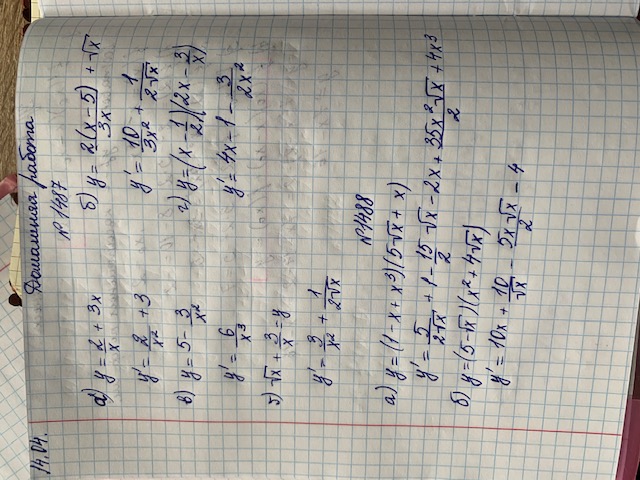 14.04.
Домашняя работа
№1487
а) y = 2/x + 3x
б) y = 2(x-5)/3x + √x
y' = 2/x² + 3
y' = 10/3x² + 1/2√x
в) y = 5 - 3/x²
г) y = (x - 1/2)(2x - 3/x)
y' = 6/x³
y' = 4x - 1 - 3/2x²
√x + 3/x = y
y' = 3/x² + 1/2√x
№1488
а) y = (1 - x + x³)(5√x + x)
y' = 5/2√x + 1 - 15/2 √x - 2x + 35x²√x/2 + 4x³
б) y = (5 - √x)(x² + 4√x)
y' = 10x + 10/√x - 5x√x/2 - 4